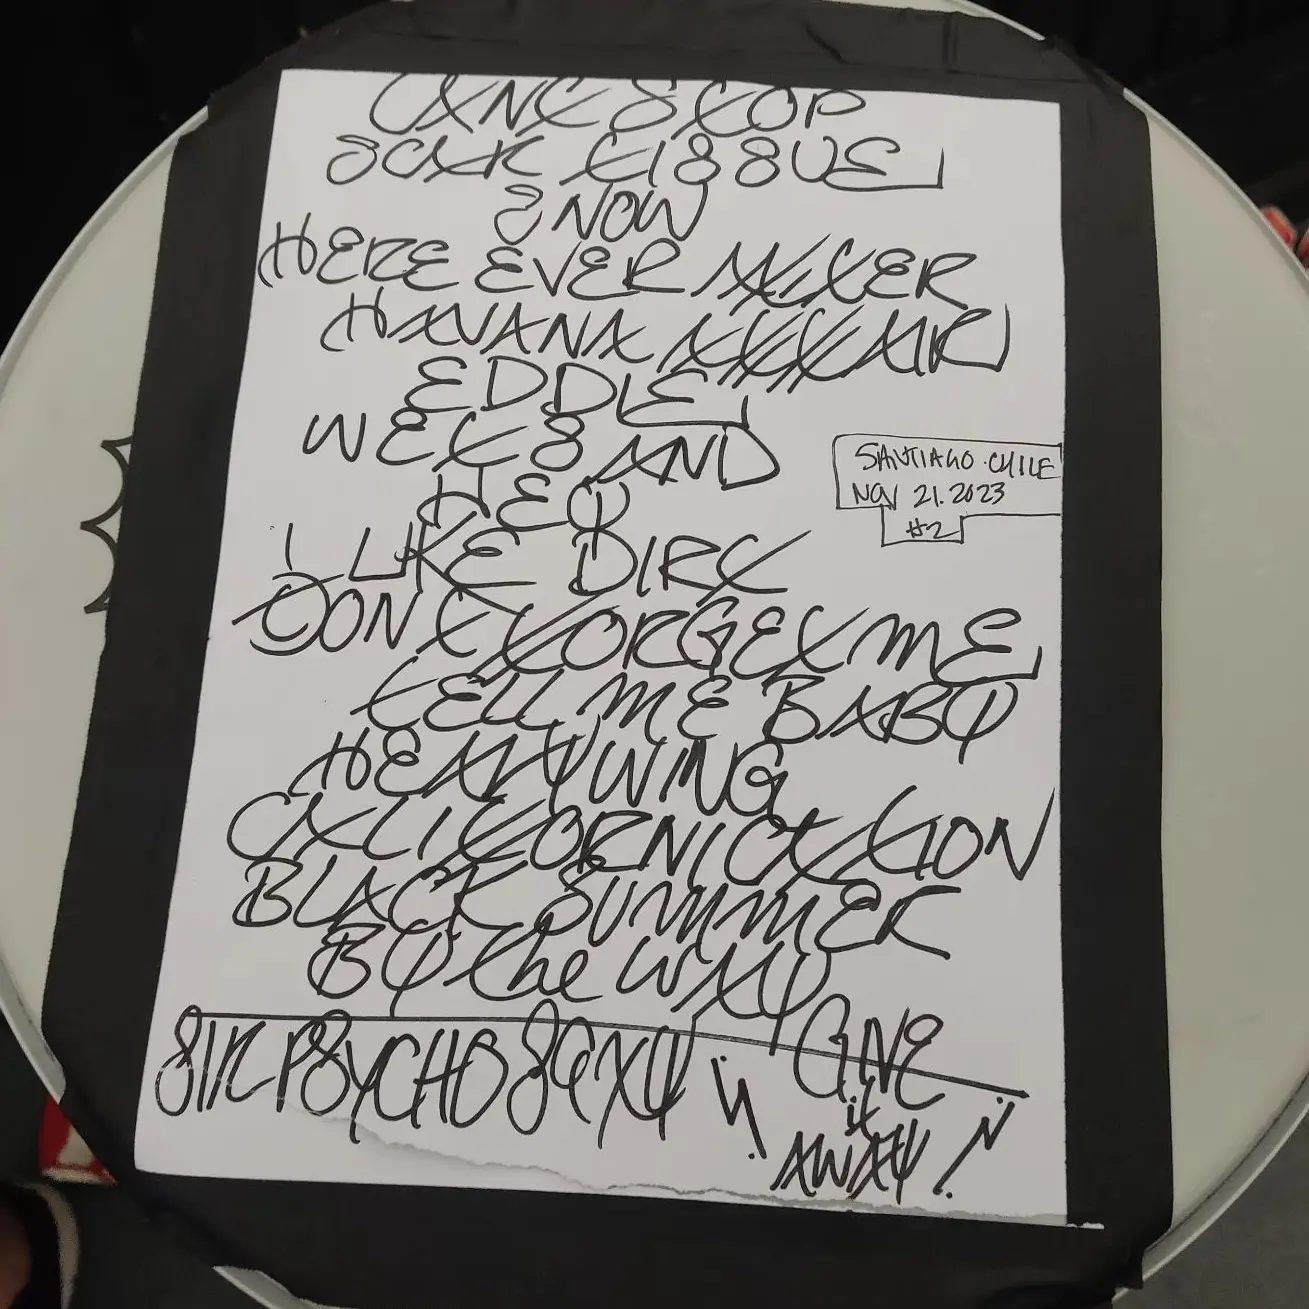 CANT STOP
SCAR TISSUE
2 NOW
HERE EVER AFTER
HAVANA AFFAIR
EDDIE
WETSAND
HEY
I LIKE DIRT
DONT FORGET ME
TELL ME BABY
HEAVY WING
CALIFORNICATION
BLACK SUMMER
BY the WAY
SIR PSYCHO SEXY
GIVE
it
AWAY!
SANTIAGO.CHILE
NOV 21.2023
#2